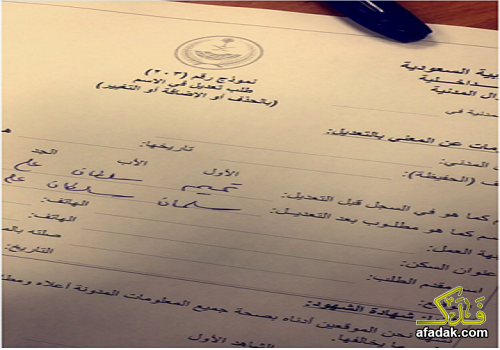 ية السعودية
داخلية
ال المدنية
نموذج رقم (٢٠٣)
طلب تعديل في الاسم
(بالحذف أو الإضافة أو التغيير)
مدنية في
مات عن المعني بالتعديل:
المدني:
ف (الحفيظة): تاريخها:
الأول الأب الجد
كما هو في السجل قبل التعديل: تميم سلطان علي
م كما هو مطلوب بعد التعديل: سلمان سلطان
هة العمل: الهاتف:
عنوان السكن: الهاتف:
اسم مقدم الطلب: صلته بالم
التاريخ:
شهادة الشهود:
شهد نحن الموقعين أدناه بصحة جميع المعلومات المدونة أعلاه ومط
ما يخالفها.
الشاهد الأول
فدك
afadak.com